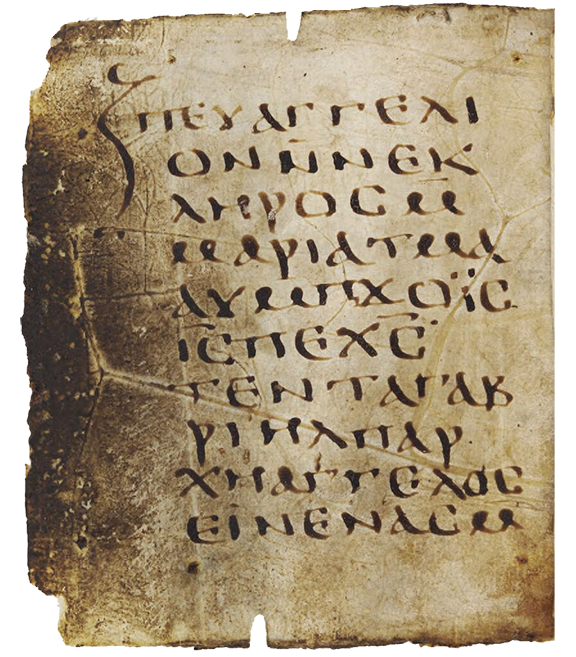 ⲠⲈⲨⲀⲄⲄⲈⲖⲒ
ⲞⲚⲚ̄ⲚⲈⲔ
ⲖⲎⲢⲞⲤⲘ̄
ⲘⲀⲢⲒⲀⲦⲘⲀ
ⲀⲨⲘⲠϪⲞⲈⲒⲤ
ⲒⲤ̄ⲠⲈⲬⲤ̄
ⲦⲈⲚⲦⲀⲄⲀⲂ
ⲢⲒⲎⲖⲠⲀⲢ
ⲬⲎⲀⲄⲄⲈⲖⲞⲤ
ⲈⲒⲚⲈⲚⲀⲤⲘ